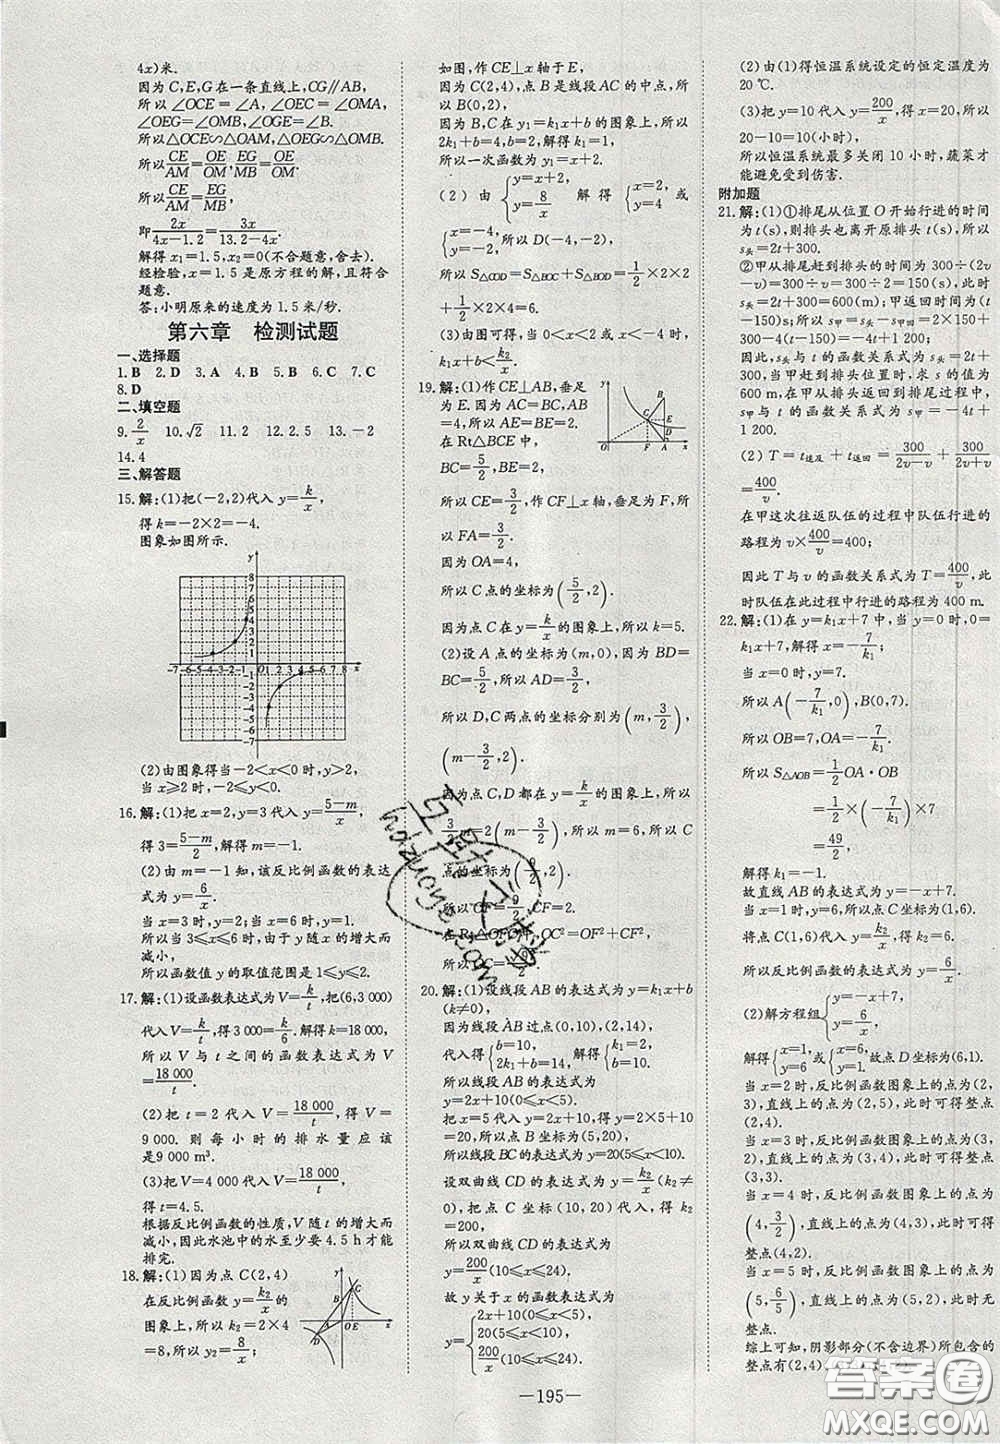 4x)米.
因为C,E,G在一条直线上,CG∥AB,
所以∠OCE=∠A,∠OEC=∠OMA,
∠OEG=∠OMB,∠OGE=∠B.
所以△OCE∽△OAM,△OEG∽△OMB.
所以CE/AM=OE/OM,EG/MB=OE/OM.
所以CE/AM=EG/MB,
即2x/(4x-1.2)=3x/(13.2-4x).
解得x₁=1.5,x₂=0(不合题意,舍去).
经检验,x=1.5是原方程的解,且符合
题意.
答:小明原来的速度为1.5米/秒.
第六章 检测试题
一、选择题
1.B 2.D 3.A 4.B 5.B 6.C 7.C
8.D
二、填空题
9.2/x 10.√2 11.2 12.2.5 13.-2
14.4
三、解答题
15.解:(1)把(-2,2)代入y=k/x,
得k=-2×2=-4.
图象如图所示.
(2)由图象得当-2<x<0时,y>2,
当x≥2时,-2≤y<0.
16.解:(1)把x=2,y=3代入y=(5-m)/x,
得3=(5-m)/2,解得m=-1.
(2)由m=-1知,该反比例函数的表达
式为y=6/x.
当x=3时,y=2;当x=6时,y=1.
所以当3≤x≤6时,由于y随x的增大而
减小,
所以函数值y的取值范围是1≤y≤2.
17.解:(1)设函数表达式为V=k/t,把(6,3 000)
代入V=k/t,得3 000=k/6.解得k=18 000,
所以V与t之间的函数表达式为V
=18 000/t.
(2)把t=2代入V=18 000/t,得V=
9 000.则每小时的排水量应该
是9 000 m³.
(3)把V=4 000代入V=18 000/t,
得t=4.5.
根据反比例函数的性质,V随t的增大而
减小,因此水池中的水至少要4.5 h才能
排完.
18.解:(1)因为点C(2,4)
在反比例函数y=k₂/x的
图象上,所以k₂=2×4
=8,所以y₂=8/x;
如图,作CE⊥x轴于E,
因为C(2,4),点B是线段AC的中点,所
以B(0,2),
因为B,C在y₁=k₁x+b的图象上,所以
2k₁+b=4,b=2,解得k₁=1,
所以一次函数为y₁=x+2.
(2)由{y=x+2,y=8/x 解得{x=2,y=4 或
{x=-4,y=-2.所以D(-4,-2),
所以S△COD=S△BOC+S△BOD=1/2×2×2
+1/2×2×4=6.
(3)由图可得,当0<x<2或x<-4时,
k₁x+b<k₂/x.
19.解:(1)作CE⊥AB,垂足
为E.因为AC=BC,AB
=4,所以AE=BE=2.
在Rt△BCE中,
BC=5/2,BE=2,
所以CE=3/2,作CF⊥x轴,垂足为F,所
以FA=3/2.
因为OA=4,
所以C点的坐标为(5/2,2).
因为点C在y=k/x的图象上,所以k=5.
(2)设A点的坐标为(m,0),因为BD=
BC=5/2,所以AD=3/2,
所以D,C两点的坐标分别为(m,3/2),
(m-3/2,2).
因为点C,D都在y=k/x的图象上,所以
3/2m=2(m-3/2),所以m=6,所以C
点的坐标为(9/2,2).
OF=9/2,CF=2.
在Rt△OFC中,OC²=OF²+CF²,
所以OC=
20.解:(1)设线段AB的表达式为y=k₁x+b
(k≠0),
因为线段AB过点(0,10),(2,14),
代入得{b=10,2k₁+b=14,解得{k₁=2,b=10.
所以线段AB的表达式为
y=2x+10(0≤x<5).
把x=5代入y=2x+10,得y=2×5+10
=20,所以点B坐标为(5,20),
所以线段BC的表达式为y=20(5≤x<10).
设双曲线CD的表达式为y=k₂/x(k₂≠
0),把点C(10,20)代入,得k₂
=200,
所以双曲线CD的表达式为
y=200/x(10≤x≤24).
故y关于x的函数表达式为
y={2x+10(0≤x<5),
20(5≤x<10),
200/x(10≤x≤24).
(2)由(1)得恒温系统设定的恒定温度为
20 ℃.
(3)把y=10代入y=200/x,得x=20,所以
20-10=10(小时),
所以恒温系统最多关闭10小时,蔬菜才
能避免受到伤害.
附加题
21.解:(1)①排尾从位置O开始行进的时间
为t(s),则排头也离开原排头t(s),所以
s头=2t+300.
②甲从排尾赶到排头的时间为300÷(2v
-v)=300÷v=300÷2=150(s),此时s头
=2t+300=600(m);甲返回时间为(t
-150)s;所以s甲=s头-s甲回=2×150+
300-4(t-150)=-4t+1 200;
因此,s头与t的函数关系式为s头=2t+
300,当甲赶到排头位置时,求s的值为
600 m,在甲从排头返回到排尾过程中,
s甲与t的函数关系式为s甲=-4t+
1 200.
(2)T=t追及+t返回=300/(2v-v)+300/(2v+v)
=400/v,
在甲这次往返队伍的过程中队伍行进的
路程为v×400/v=400;
因此T与v的函数关系式为T=400/v,此
时队伍在此过程中行进的路程为400 m.
22.解:(1)在y=k₁x+7中,当y=0时,0=
k₁x+7,解得x=-7/k₁;
当x=0时,y=7.
所以A(-7/k₁,0),B(0,7).
所以OB=7,OA=-7/k₁.
所以S△AOB=1/2OA·OB
=1/2×(-7/k₁)×7
=49/2,
解得k₁=-1.
故直线AB的表达式为y=-x+7.
当x=1时,y=6,所以C坐标为(1,6).
将点C(1,6)代入y=k₂/x,得k₂=6.
所以反比例函数的表达式为y=6/x.
(2)解方程组{y=-x+7,y=6/x,
解得{x=1,y=6 或{x=6,y=1,故点D坐标为(6,1).
当x=2时,反比例函数图象上的点为(2,
3),直线上的点为(2,5),此时可得整点
(2,4).
当x=3时,反比例函数图象上的点为(3,
2),直线上的点为(3,4),此时可得整点
(3,3).
当x=4时,反比例函数图象上的点为
(4,3/2),直线上的点为(4,3),此时可得
整点(4,2).
当x=5时,反比例函数图象上的点为
(5,6/5),直线上的点为(5,2),此时无
整点.
综上可知,阴影部分(不含边界)所包含的
整点有(2,4),
—195—
答案圈
MXQE.COM